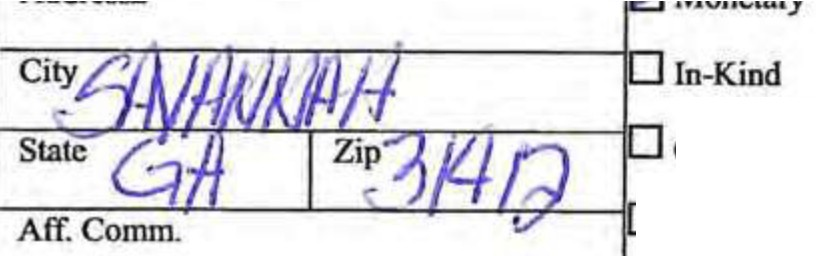 Monetary
City SAVANNAH
In-Kind
State GA Zip
Aff. Comm.